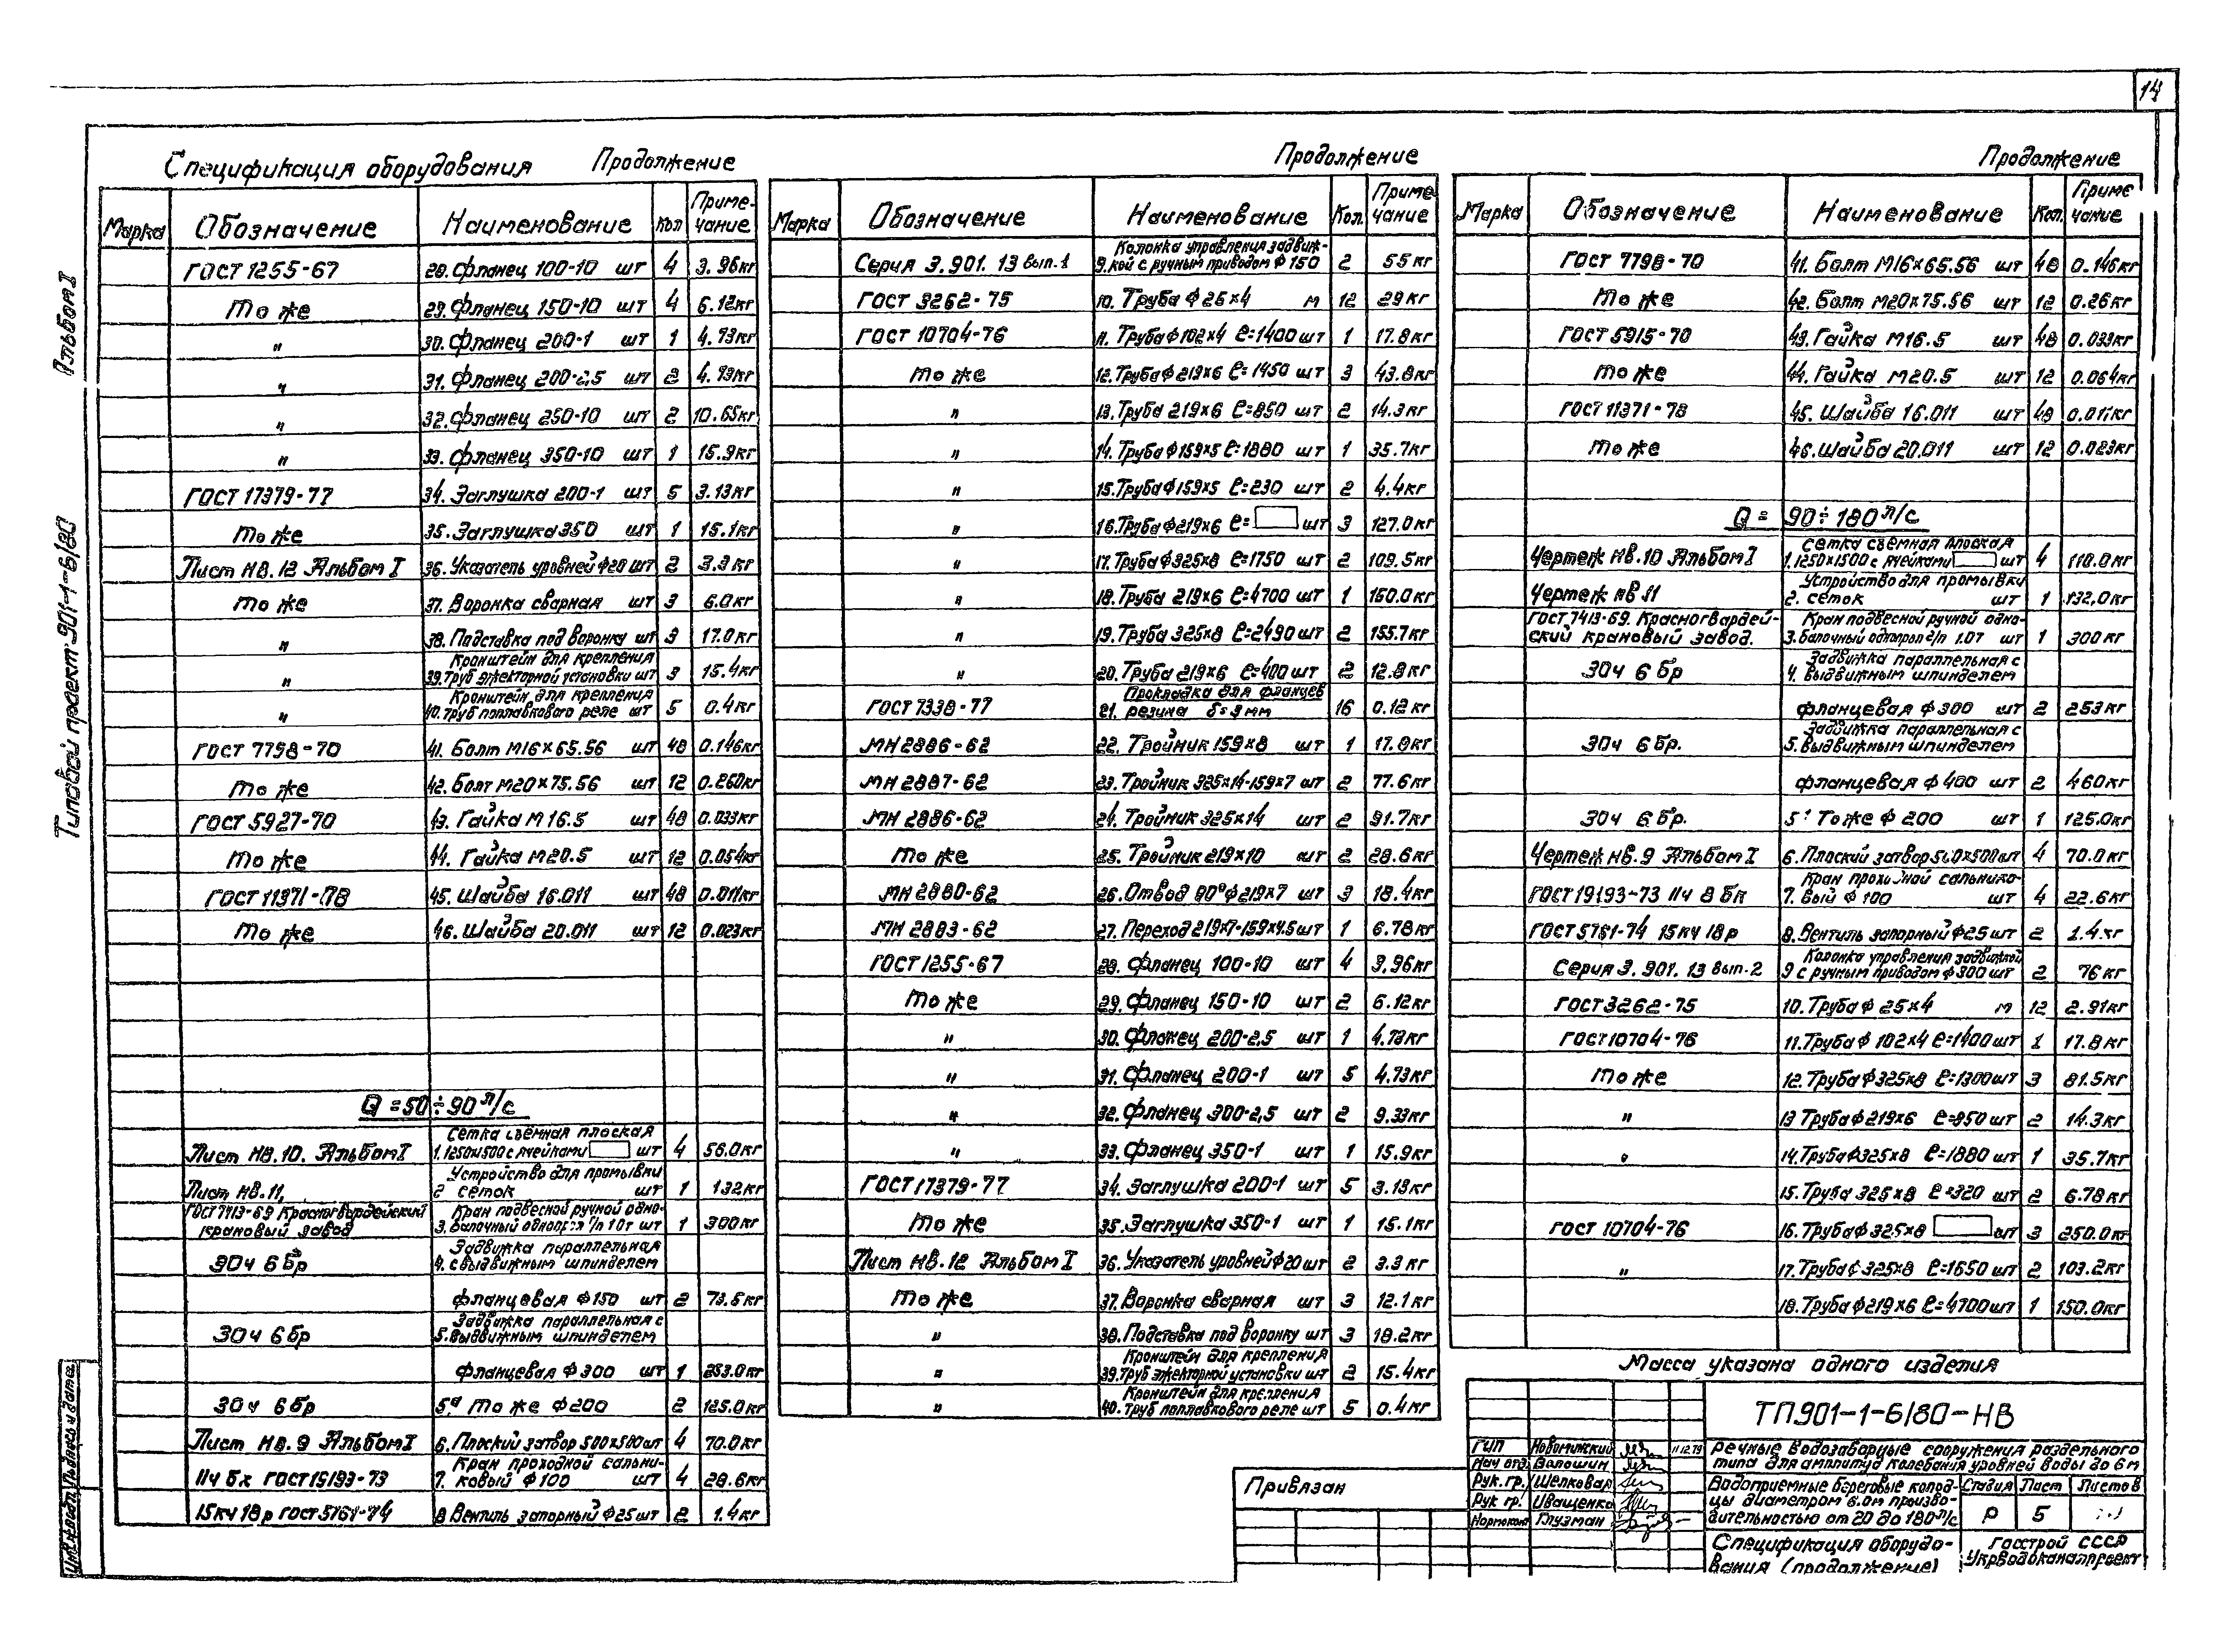 14
Альбом I
Типовой проект 901-1-6/80
Спецификация оборудования Продолжение
Марка Обозначение Наименование Кол Примечание
ГОСТ 1255-67 28. Фланец 100-10 шт 4 3.96кг
То же 29. Фланец 150-10 шт 4 6.12кг
" 30. Фланец 200-1 шт 1 4.73кг
" 31. Фланец 200-2,5 шт 2 4.73кг
" 32. Фланец 250-10 шт 2 10.65кг
" 33. Фланец 350-10 шт 1 15.9кг
ГОСТ 17379-77 34. Заглушка 200-1 шт 5 3.13кг
То же 35. Заглушка 350 шт 1 15.1кг
Лист НВ.12 Альбом I 36. Указатель уровней ф20 шт 2 3.3кг
То же 37. Воронка сварная шт 3 6.0кг
" 38. Подставка под воронку шт 3 17.0кг
" Кронштейн для крепления
39. труб эжекторной установки шт 3 15.4кг
" Кронштейн для крепления
40. труб поплавкового реле шт 5 0.4кг
ГОСТ 7798-70 41. Болт М16×65.56 шт 48 0.146кг
То же 42. Болт М20×75.56 шт 12 0.260кг
ГОСТ 5927-70 43. Гайка М16.5 шт 48 0.033кг
То же 44. Гайка М20.5 шт 12 0.054кг
ГОСТ 11371-78 45. Шайба 16.011 шт 48 0.011кг
То же 46. Шайба 20.011 шт 12 0.023кг
Q = 50÷90 л/с
Лист НВ.10. Альбом I Сетка съемная плоская
1. 1250×1500 с ячейками шт 4 56.0кг
Лист НВ.11, Устройство для промывки
2 сеток шт 1 132кг
ГОСТ 7413-69 Красногвардейский крановый завод Кран подвесной ручной одно-
3. балочный однопрол г/п 1.0т шт 1 300кг
30ч 6бр Задвижка параллельная
4. с выдвижным шпинделем
фланцевая ф150 шт 2 73.5кг
30ч 6бр Задвижка параллельная с
5. выдвижным шпинделем
фланцевая ф300 шт 1 253.0кг
30ч 6бр 5а То же ф200 2 125.0кг
Лист НВ.9 Альбом I 6. Плоский затвор 500×500шт 4 70.0кг
11ч 6к ГОСТ 19193-73 Кран проходной сальни-
7. ковый ф100 шт 4 28.6кг
15кч 18р ГОСТ 5761-74 8 Вентиль запорный ф25 шт 2 1.4кг
Продолжение
Марка Обозначение Наименование Кол. Примечание
Серия 3.901.13 вып.1 Колонка управления задвиж-
9. кой с ручным приводом ф150 2 55кг
ГОСТ 3262-75 10. Труба ф25×4 м 12 29кг
ГОСТ 10704-76 11. Труба ф102×4 ℓ=1400 шт 1 17.8кг
То же 12. Труба ф219×6 ℓ=1450 шт 3 43.8кг
" 13. Труба 219×6 ℓ=850 шт 2 14.3кг
" 14. Труба ф159×5 ℓ=1880 шт 1 35.7кг
" 15. Труба ф159×5 ℓ=230 шт 2 4.4кг
" 16. Труба ф219×6 ℓ= шт 3 127.0кг
" 17. Труба ф325×8 ℓ=1750 шт 2 109.5кг
" 18. Труба 219×6 ℓ=4700 шт 1 150.0кг
" 19. Труба 325×8 ℓ=2490 шт 2 155.7кг
" 20. Труба 219×6 ℓ=400 шт 2 12.8кг
ГОСТ 7338-77 Прокладка для фланцев
21. резина δ=3мм 16 0.12кг
МН 2886-62 22. Тройник 159×8 шт 1 17.8кг
МН 2887-62 23. Тройник 325×14-159×7 шт 2 77.6кг
МН 2886-62 24. Тройник 325×14 шт 2 91.7кг
То же 25. Тройник 219×10 шт 2 28.6кг
МН 2880-62 26. Отвод 90° ф219×7 шт 3 18.4кг
МН 2883-62 27. Переход 219×7-159×4.5 шт 1 6.78кг
ГОСТ 1255-67 28. Фланец 100-10 шт 4 3.96кг
То же 29. Фланец 150-10 шт 2 6.12кг
" 30. Фланец 200-2,5 шт 1 4.73кг
" 31. Фланец 200-1 шт 5 4.73кг
" 32. Фланец 300-2,5 шт 2 9.33кг
" 33. Фланец 350-1 шт 1 15.9кг
ГОСТ 17379-77 34. Заглушка 200-1 шт 5 3.13кг
То же 35. Заглушка 350-1 шт 1 15.1кг
Лист НВ.12 Альбом I 36. Указатель уровней ф20 шт 2 3.3кг
То же 37. Воронка сварная шт 3 12.1кг
" 38. Подставка под воронку шт 3 18.2кг
" Кронштейн для крепления
39. труб эжекторной установки шт 2 15.4кг
" Кронштейн для крепления
40. труб поплавкового реле шт 5 0.4кг
Продолжение
Марка Обозначение Наименование Кол. Примечание
ГОСТ 7798-70 41. Болт М16×65.56 шт 48 0.146кг
То же 42. Болт М20×75.56 шт 12 0.26кг
ГОСТ 5915-70 43. Гайка М16.5 шт 48 0.033кг
То же 44. Гайка М20.5 шт 12 0.064кг
ГОСТ 11371-78 45. Шайба 16.011 шт 48 0.011кг
То же 46. Шайба 20.011 шт 12 0.023кг
Q = 90÷180 л/с
Чертеж НВ.10 Альбом I Сетка съемная плоская
1. 1250×1500 с ячейками шт 4 118.0кг
Чертеж НВ 11 Устройство для промывки
2. сеток шт 1 132,0кг
ГОСТ 7413-69. Красногвардейский крановый завод. Кран подвесной ручной одно-
3. балочный однопрол г/п 1.0т шт 1 300кг
30ч 6бр Задвижка параллельная с
4. выдвижным шпинделем
фланцевая ф300 шт 2 253кг
30ч 6бр. Задвижка параллельная с
5. выдвижным шпинделем
фланцевая ф400 шт 2 460кг
30ч 6бр. 5' То же ф200 шт 1 125.0кг
Чертеж НВ.9 Альбом I 6. Плоский затвор 500×500шт 4 70.0кг
ГОСТ 19193-73 11ч 8бк Кран проходной сальнико-
7. вый ф100 шт 4 22.6кг
ГОСТ 5761-74 15кч 18р 8. Вентиль запорный ф25 шт 2 1.4кг
Серия 3.901.13 вып.2 Колонка управления задвижкой
9 с ручным приводом ф300 шт 2 76кг
ГОСТ 3262-75 10. Труба ф25×4 м 12 2.91кг
ГОСТ 10704-76 11. Труба ф102×4 ℓ=1400шт 1 17.8кг
То же 12. Труба ф325×8 ℓ=1300шт 3 81.5кг
" 13 Труба ф219×6 ℓ=850шт 2 14.3кг
" 14. Труба ф325×8 ℓ=1880шт 1 35.7кг
15. Труба 325×8 ℓ=320 шт 2 6.78кг
ГОСТ 10704-76 16. Труба ф325×8 шт 3 250.0кг
" 17. Труба ф325×8 ℓ=1650шт 2 103.2кг
18. Труба ф219×6 ℓ=4700шт 1 150.0кг
Масса указана одного изделия
ТП901-1-6/80-НВ
ГИП Новоминский 11.12.79
Нач отд. Валошин
Рук.гр. Шелковая
Рук гр. Иващенко
Нормокон Глузман
Речные водозаборные сооружения раздельного
типа для амплитуд колебания уровней воды до 6м
Водоприемные береговые колод-
цы диаметром 6.0м произво-
дительностью от 20 до 180 л/с
Стадия Лист Листов
Р 5
Спецификация оборудо-
вания (продолжение)
Госстрой СССР
Укрводоканалпроект
Привязан
Инв.№подл. Подпись и дата